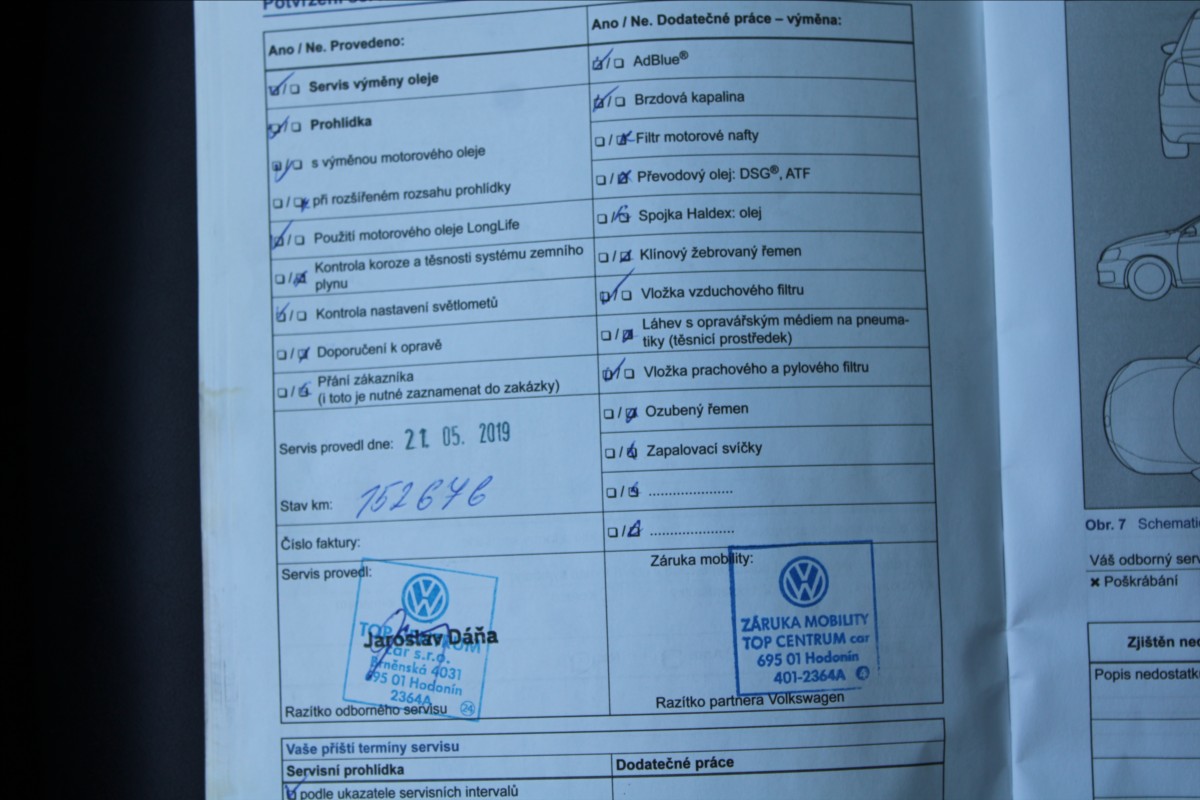 Ano / Ne. Provedeno:
Servis výměny oleje
Prohlídka
s výměnou motorového oleje
při rozšířeném rozsahu prohlídky
Použití motorového oleje LongLife
Kontrola koroze a těsnosti systému zemního
plynu
Kontrola nastavení světlometů
Doporučení k opravě
Přání zákazníka
(i toto je nutné zaznamenat do zakázky)
Servis provedl dne: 21. 05. 2019
Stav km: 152676
Číslo faktury:
Servis provedl:
TOP CENTRUM
Jaroslav Dáňa
car s.r.o.
Brněnská 4031
695 01 Hodonín
2364A
24
Razítko odborného servisu
Ano / Ne. Dodatečné práce – výměna:
AdBlue®
Brzdová kapalina
Filtr motorové nafty
Převodový olej: DSG®, ATF
Spojka Haldex: olej
Klínový žebrovaný řemen
Vložka vzduchového filtru
Láhev s opravářským médiem na pneuma-
tiky (těsnicí prostředek)
Vložka prachového a pylového filtru
Ozubený řemen
Zapalovací svíčky
.....................
.....................
Záruka mobility:
ZÁRUKA MOBILITY
TOP CENTRUM car
695 01 Hodonín
401-2364A
Razítko partnera Volkswagen
Vaše příští termíny servisu
Servisní prohlídka
Dodatečné práce
podle ukazatele servisních intervalů
Obr. 7 Schemati
Váš odborný serv
× Poškrábání
Zjištěn ned
Popis nedostatk